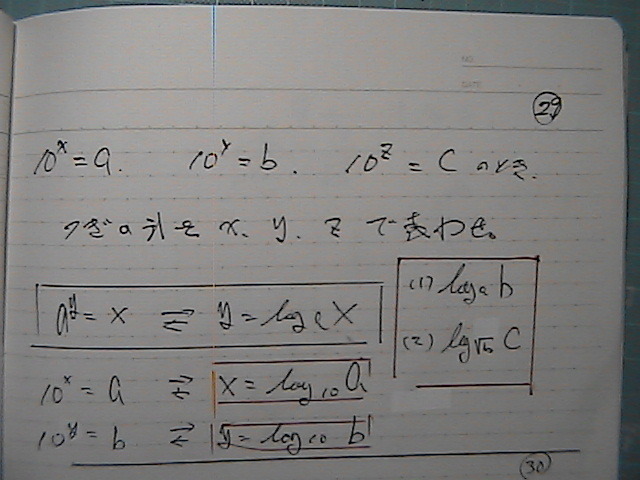 NO.
DATE
29
10^x = a. 10^y = b. 10^z = C のとき.
つぎの式を x. y. z で表わせ。
a^y = x ⇄ y = log_a X
(1) log_a b
(2) lg_√b C
10^x = a ⇄ x = log_10 a
10^y = b ⇄ y = log_10 b
30